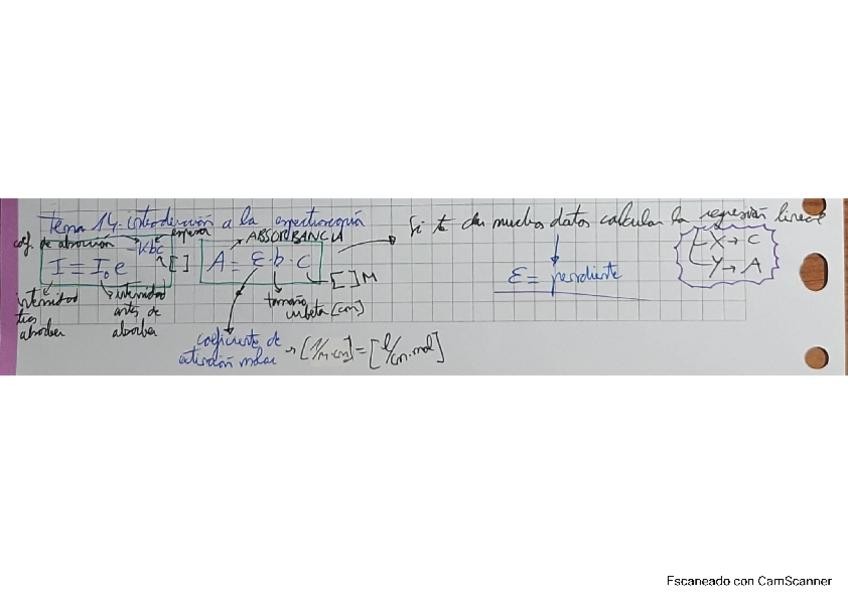 Tema 14. introducción a la espectroscopía
Si te dan muchos datos calcular la regresión lineal
coef. de absorción
espesor
I = I₀e^-kbc
[ ]
ABSORBANCIA
A = ε·b·c
[ ] M
X → C
Y → A
ε = pendiente
intensidad tras absorber
intensidad antes de absorber
tamaño cubeta [cm]
coeficiente de extinción molar → [1/M·cm] = [l/cm·mol]
Escaneado con CamScanner